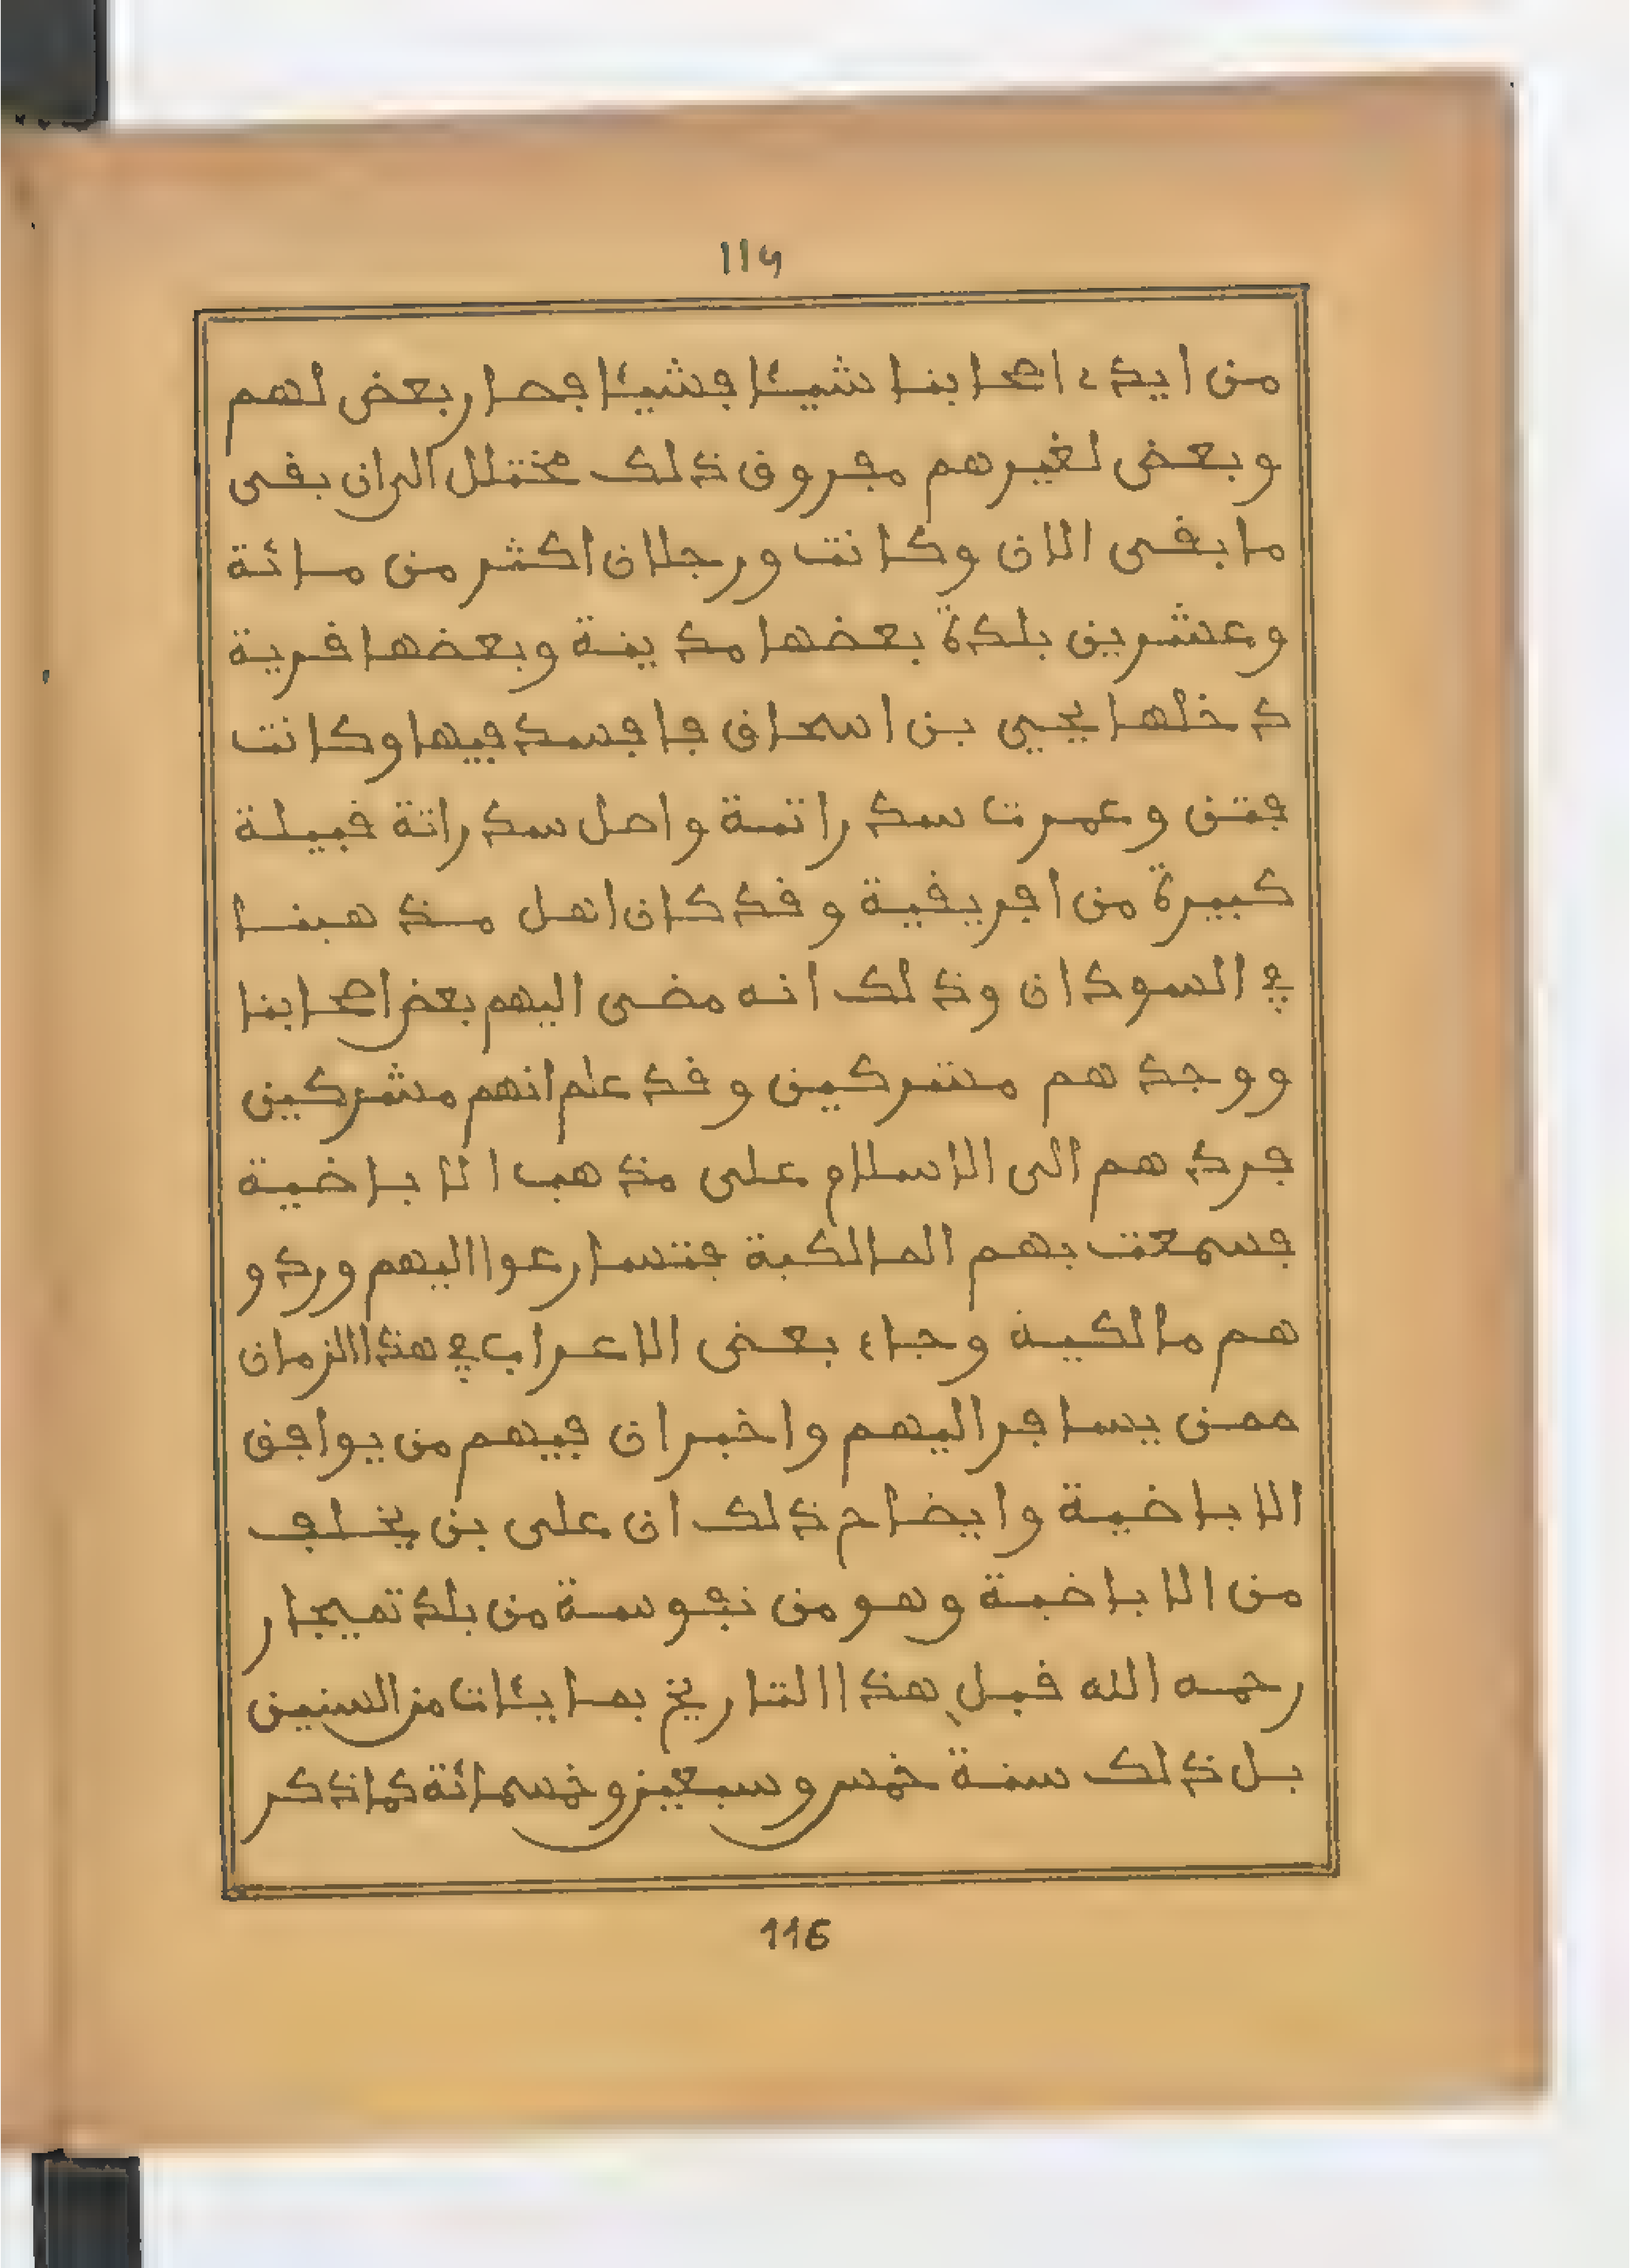 114
من ايدء اصحابنا شيئا ڢشيئا ڢصار بعض لهم
وبعض لغيرهم مڢروق ذلك مختلل الى ان بقى
ما بقى الان وكانت ورجلان اكثر من مائة
وعشرين بلدة بعضها مدينة وبعضها قرية
دخلها يحيى بن اسحاق ڢاڢسد ڢيها وكانت
ڢتن وعمرت سدراتة واصل سدراتة قبيلة
كبيرة من اڢريقية وقد كان اهل مذهبنا
ڢي السودان وذلك انه مضى اليهم بعض اصحابنا
ووجدهم مشركين وقد علم انهم مشركين
ڢردهم الى الاسلام على مذهب الاباضية
ڢسمعت بهم المالكية ڢتسارعوا اليهم وردو
هم مالكية وجاء بعض الاعراب ڢي هذا الزمان
ممن يساڢر اليهم واخبر ان ڢيهم من يواڢق
الاباضية وايضاح ذلك ان على بن يخلڢ
من الاباضية وهو من نڢوسة من بلد تميجار
رحمه الله قبل هذا التاريخ بمايئات من السنين
بل ذلك سنة خمس وسبعين وخمسمائة كما ذكر
116